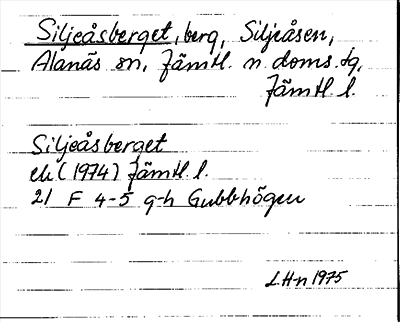 Siljeåsberget, berg, Siljeåsen,
Alanäs sn, Jämtl. n. doms.tg,
Jämtl. l.
Siljeåsberget
ek (1974) Jämtl. l.
21 F 4-5 g-h Gubbhögen
LH-n 1975